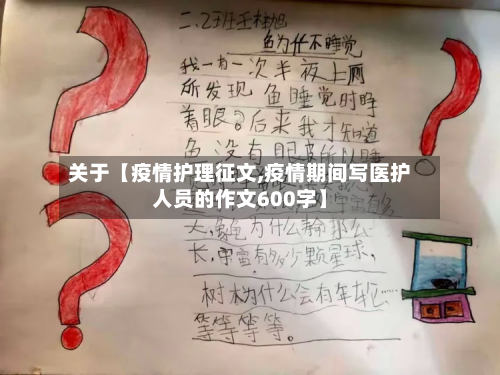 二、2班王梓旭
鱼为什么不睡觉
我一有一次半夜上厕
所发现鱼睡觉时睁
着眼。后来我才知道
鱼没有眼皮所以睡
关于【疫情护理征文,疫情期间写医护
人员的作文600字】
大,象鼻为什么静那么
长,宇宙有多少颗星球,
树木为什么会有年轮……
等等等等。